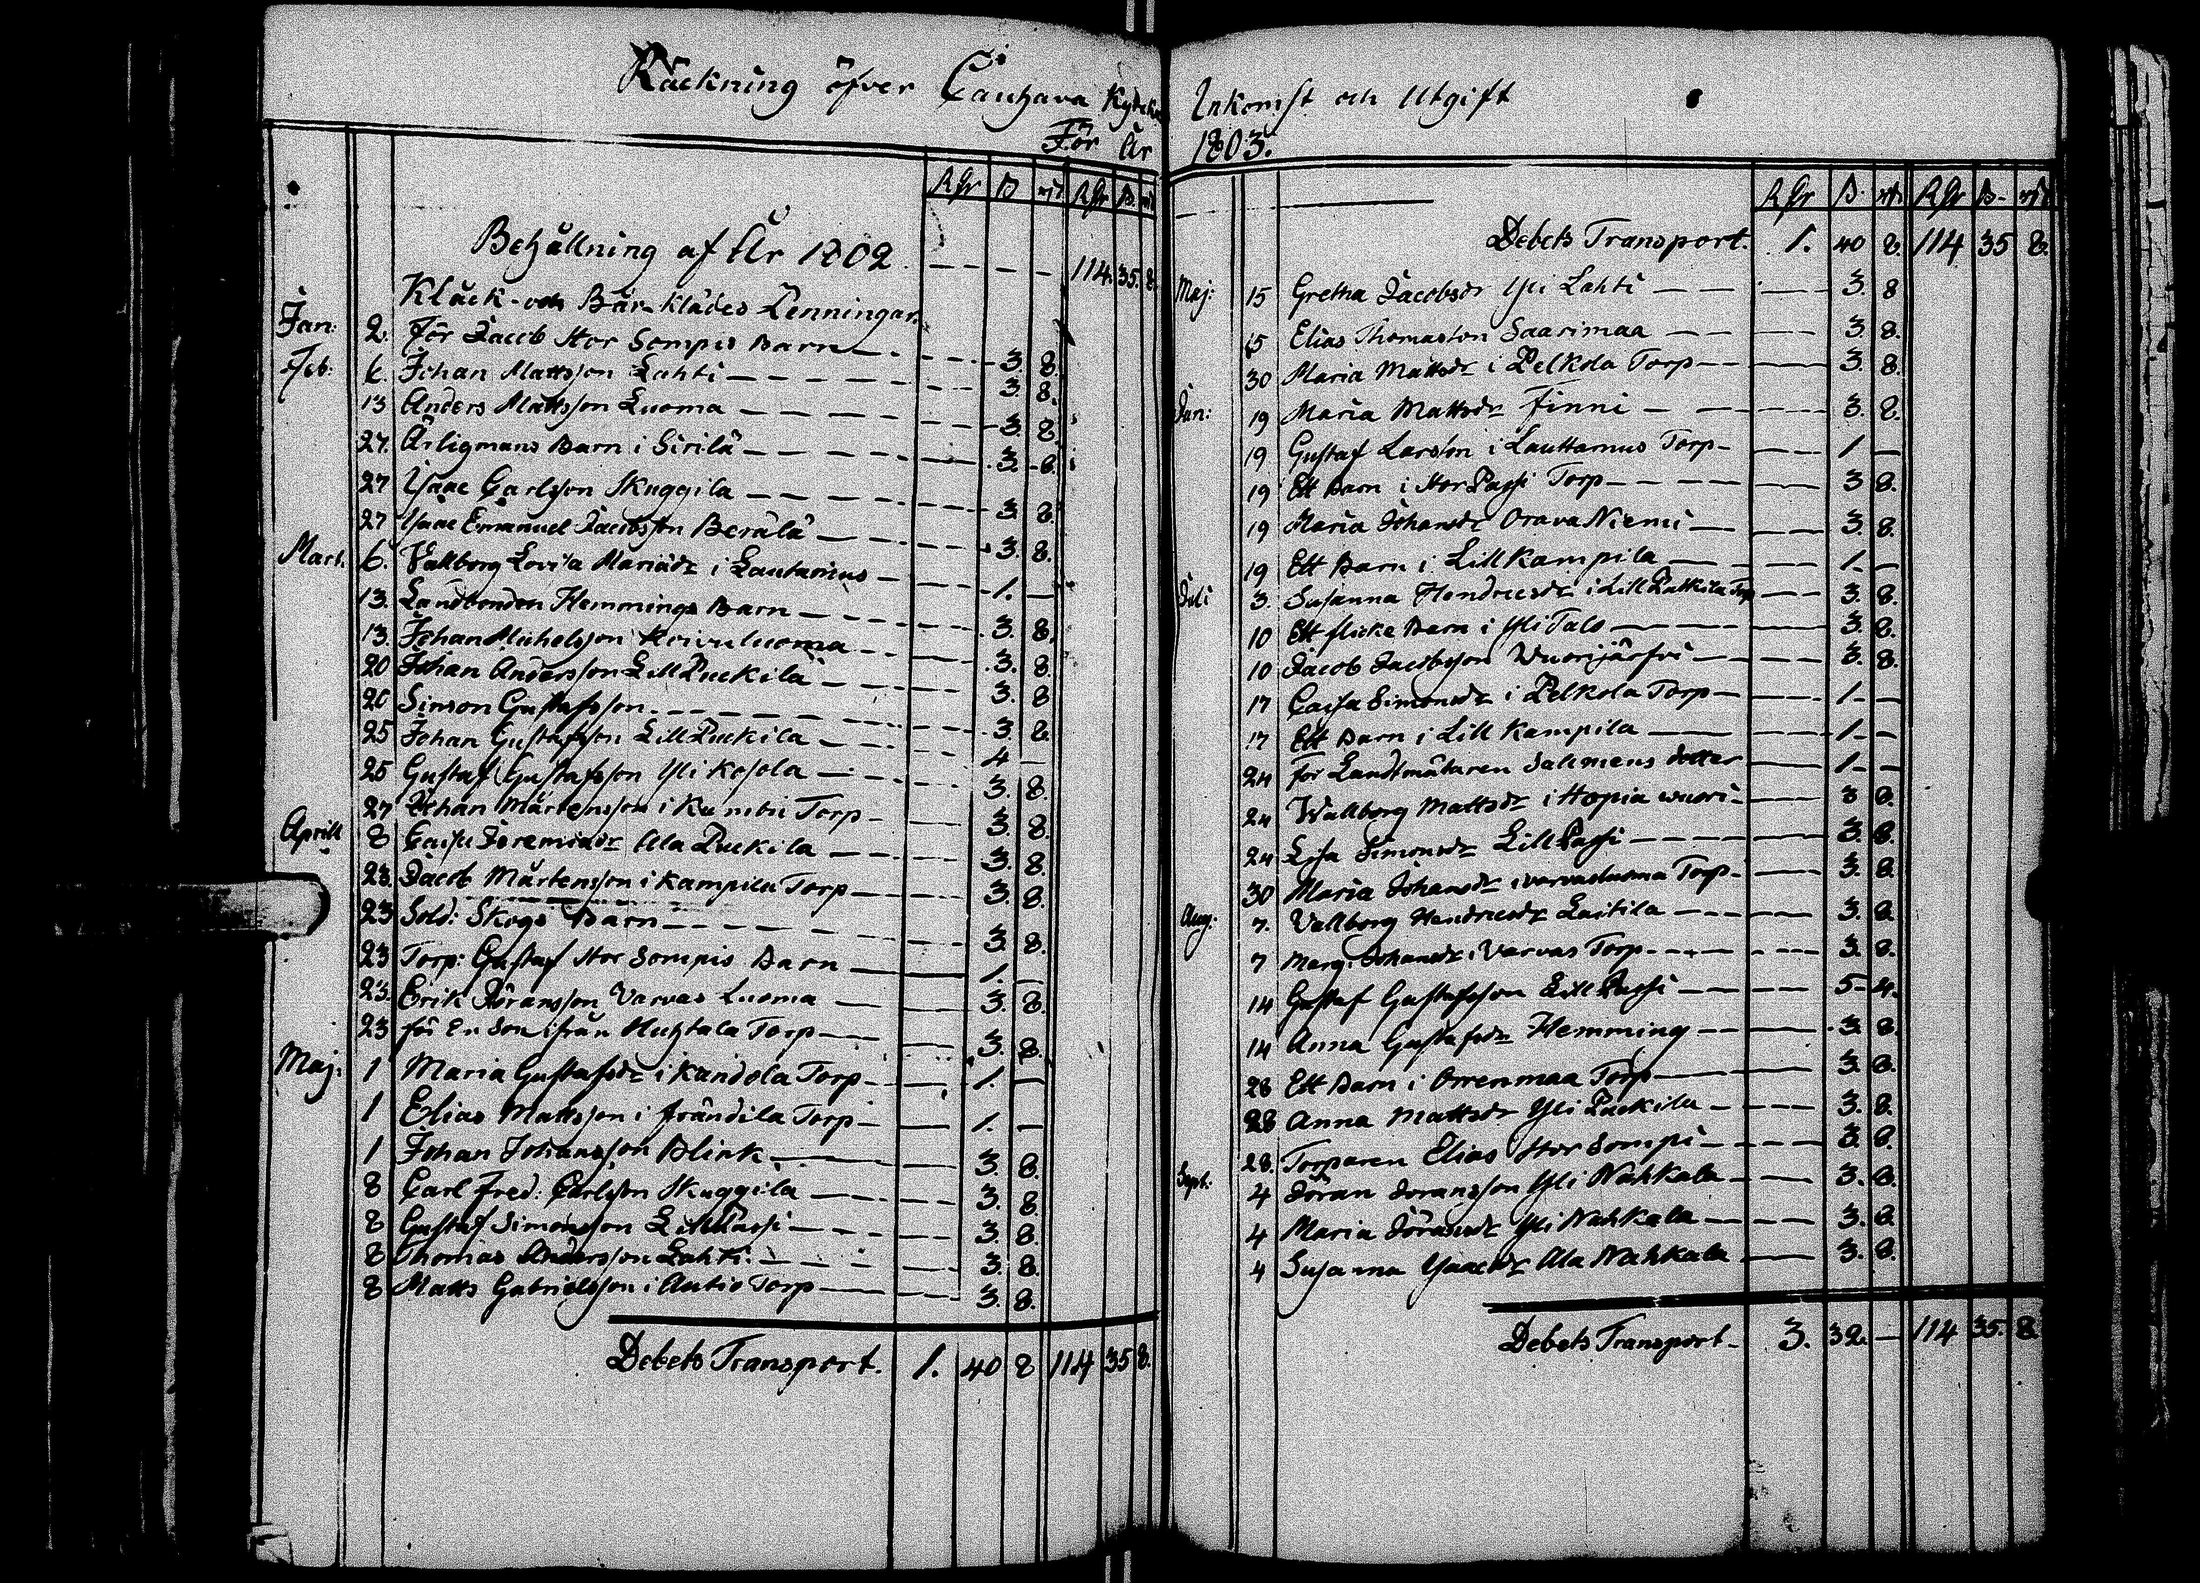 Räckning öfver Cauhava Kyrckas Inkomst och Utgift
För År 1803.
RGr ß rst RGr ß rst
Behållning af År 1802 — — — — 114. 35. 8.
Klåck- och Bår-klädes Penningar
Jan: 2. För Jacob Stor Sompis Barn — 3. 8.
Feb: 6. Johan Mattsson Lahti — 3. 8.
13 Anders Mattsson Luoma — 3. 8.
27. Ärligmans Barn i Sirilä — 3. 8.
27 Isaac Carlsson Skuggila — 3. 8.
27 Isaac Emanuel Jacobsson Berälä — 3. 8.
Mart. 6. Vallborg Lovisa Mariädr i Lautamus — 1. —
13. Landbonden Hemmings Barn — 3. 8.
13. Johan Michelsson Koivuluoma — 3. 8.
20 Johan Andersson Lill Puckila — 3. 8
20 Simon Gustafsson — 3. 8.
25 Johan Gustafsson Lill Puckila — 4 —
25 Gustaf Gustafsson Yli Kosola — 3. 8.
27 Johan Mårtensson i Torp — 3. 8.
Aprill 8 Caisa Jeremiædr Ala Puckila — 3. 8.
23. Jacob Mårtensson i Kampila Torp — 3. 8.
23 Sold: Skogs Barn — 3. 8.
23 Torp: Gustaf Stor Sompis Barn — 1. —
23. Erik Jöransson Varvas Luoma — 3. 8.
23 för En Son ifrån Huhtala Torp — 3. 8.
Maj: 1 Maria Gustafsdr i Kandola Torp — 1. —
1 Elias Mattsson i frändila Torp — 1. —
1 Johan Johansson Blink — 3. 8.
8 Carl Fred: Carlsson Skuggila — 3. 8.
8 Gustaf Simonsson Lill Passi — 3. 8.
8 Thomas Andersson Lahti — 3. 8.
8 Matts Gabrielsson i Antio Torp — 3. 8.
Debets Transport. 1. 40 8 114 35 8.
RGr ß rst RGr ß rst
Debets Transport. 1. 40 8. 114 35 8.
Maj: 15 Gretha Jacobsdr Yli Lahti — 3. 8
15 Elias Thomasson Saarimaa — 3. 8.
30 Maria Mattsdr i Pelkola Torp — 3. 8.
Jun: 19 Maria Mattsdr Finni — 3. 8.
19 Gustaf Larsson i Lauttamus Torp — 1 —
19 Ett Barn i Stor Passi Torp — 3 8.
19 Maria Johansdr Orava Niemi — 3. 8.
19 Ett Barn i Lill Kampila — 1. —
Juli 3. Susanna Hendricsdr i Lill Puckila Torp — 3. 8.
10 Ett flicke Barn i Yli Talo — 3. 8.
10 Jacob Jacobsson Wuorijärfvi — 3. 8.
17 Caisa Simonsdr i Pelkola Torp — 1. —
17 Ett Barn i Lill Kampila — 1. —
24 för Landtmätaren Salmens dotter — 1. —
24 Wallborg Mattsdr i Hopia wuori — 3 8.
24 Lisa Simonsdr Lill Passi — 3. 8.
30 Maria Johansdr i varvasluoma Torp — 3. 8.
Aug: 7. Vallborg Hendricsdr Laitila — 3. 8.
7 Marg. Johansdr i Varvas Torp — 3. 8.
14 Gustaf Gustafsson Lill Passi — 5. 4.
14 Anna Gustafsdr Hemming — 3. 8.
28 Ett Barn i Orrenmaa Torp — 3. 8.
28 Anna Mattsdr Yli Puckila — 3. 8.
28. Torparen Elias Stor Sompi — 3. 8.
Sept: 4 Jöran Joransson Yli Nahkala — 3. 8.
4 Maria Jöransdr Yli Nahkala — 3. 8.
4 Susanna Isaacsdr Ala Nahkala — 3. 8.
Debets Transport. 3. 32. — 114 35. 8